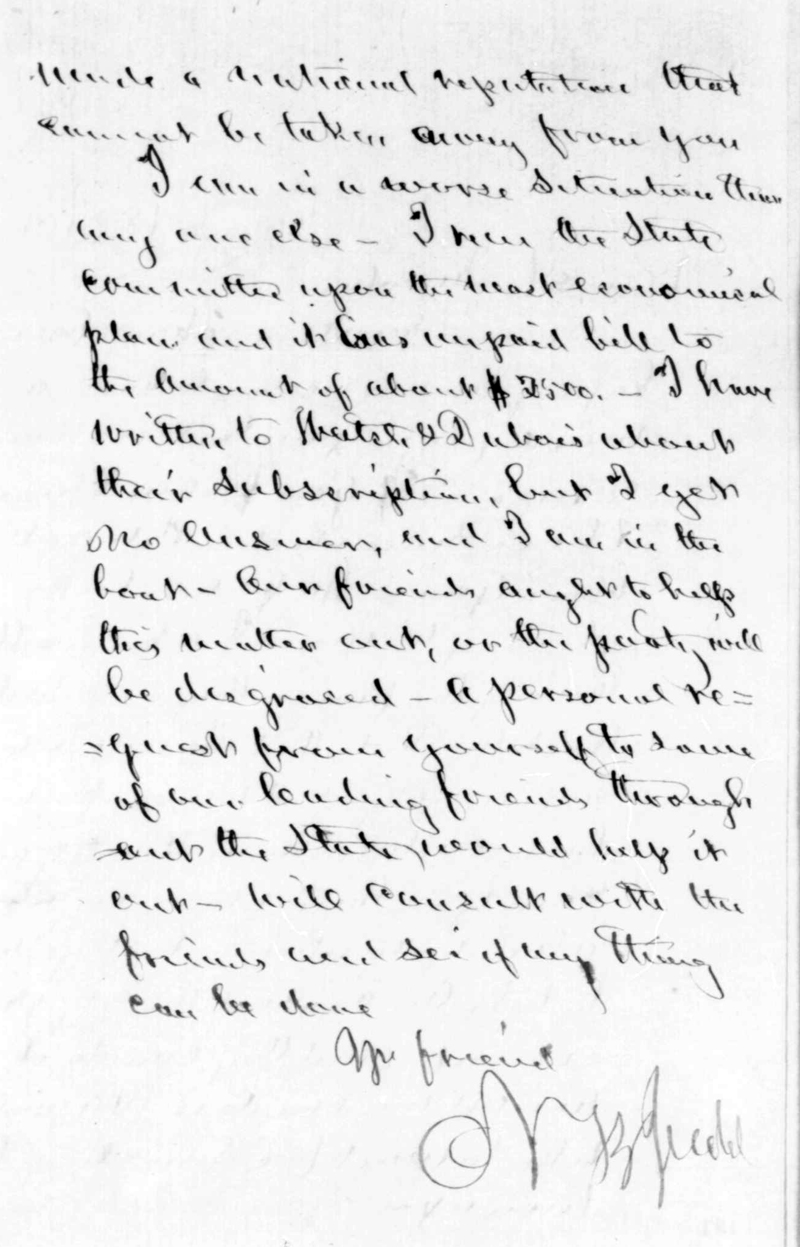 made a national reputation that
cannot be taken away from you
I am in a worse situation than
any one else – I run the State
committee upon the most economical
plan and it has unpaid bill to
the amount of about $2500. – I have
written to Hatch & Dubois about
their subscription, but I get
no answer, and I am in the
boat – Our friends ought to help
this matter out, or the party will
be disgraced – A personal re=
=quest from yourself to some
of our leading friends through
=out the State, would help it
out – Will consult with the
friends and see if any thing
can be done
Yr friend
N B Judd